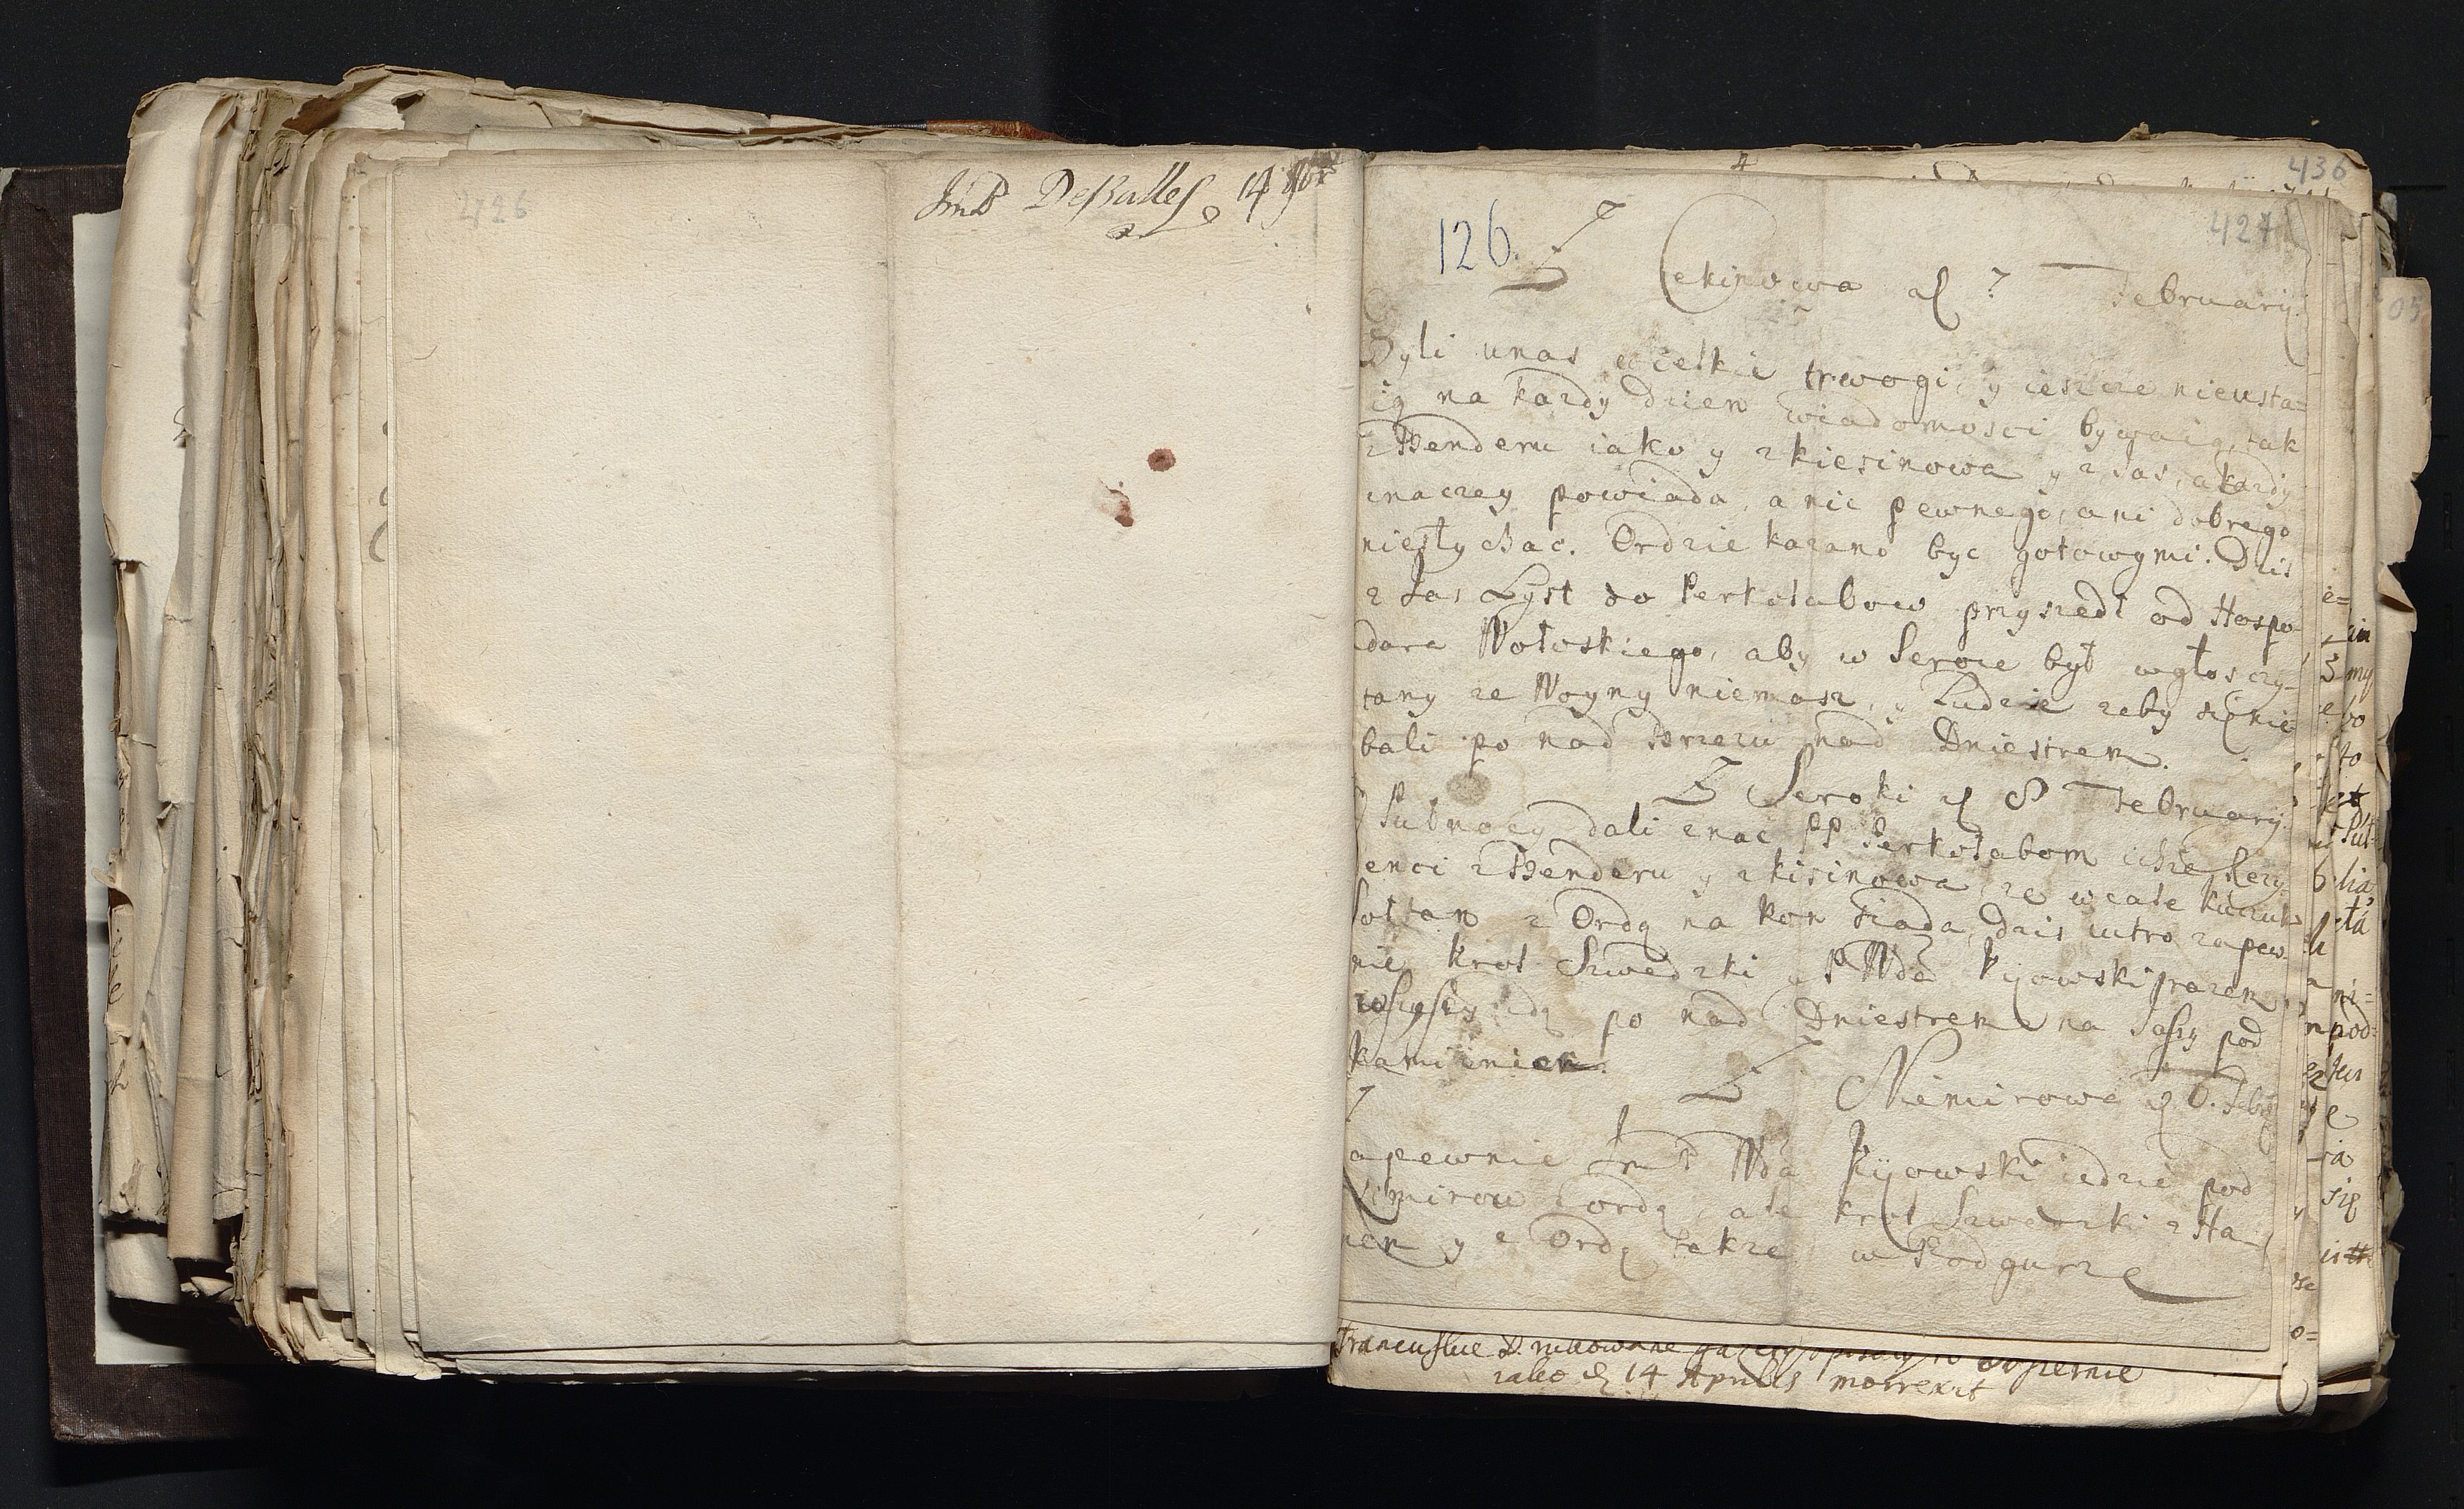 426
DeBalles 14
436
427
126. Z Cekinowa d 7 February.
Byli unas wielkie trwogi, y ieszcze nieusta=
ią na kazdy dzien wiadomosci bywaią, tak
z Benderu iako y z kiesinowa y z Jas, a kazdy
inaczey powiada, a nic pewnego, ani dobrego
niesłychac. Ordzie kazano byc gotowymi. Dzis
z Jas Lyst do Perkołabow przyszedł od Hospo-
dara Wołoskiego, aby w Seroce był wgłos czy-
tany ze Woyny niemasz, y Ludzie zeby się nie
bali po nad Brzegu nad Dniestrem.
Z Seroki d 8 February.
Pułnocy dali znac PP Perkołabom ichze Rezy-
enci z Benderu y z kisinowa, ze wcale kuczuk
sołtan z Ordą na kon siada, dzis iutro zapew
nie krol Szwedzki y P Wda Kyowski razem
wszyscy idą po nad Dniestrem na Jassy pod
kamieniec.
Z Niemirowa d 6. Feb
apewnie Jm P Wda Kyowski iedzie pod
imirow z ordą, ale krol Szwedzki z Ha
nem y z Ordą takze w Podgurze
Francuskie Drukowane gazety
d 14 Aprilis